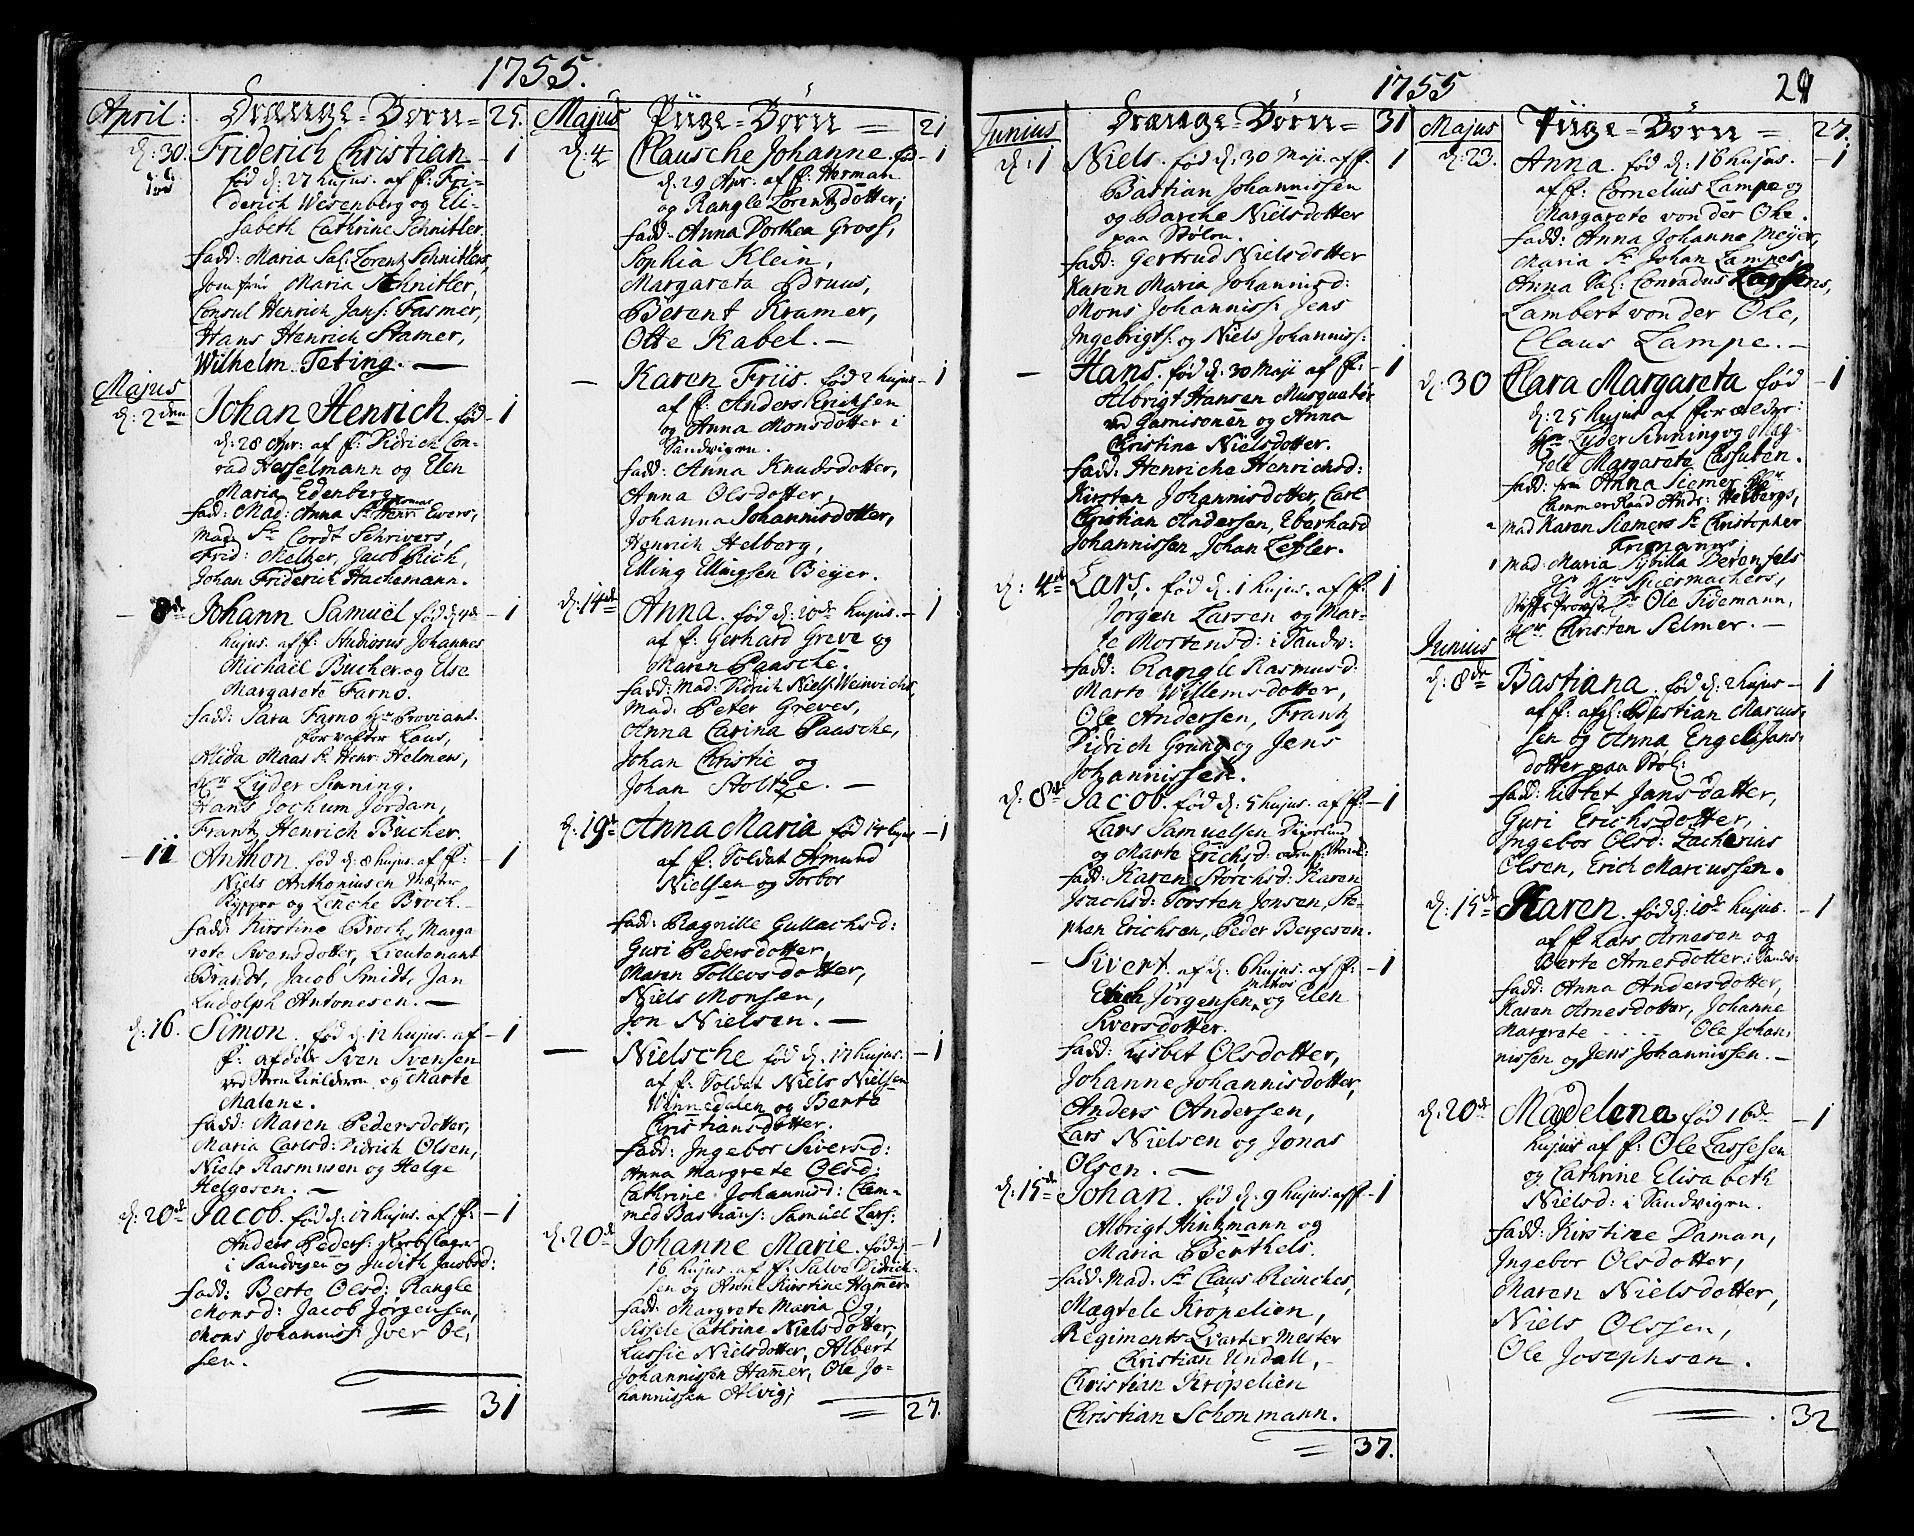 1755.
April: Drænge-Børn= 25.
d: 30. Friderich Christian — 1
fød d: 27 hujus. af f: Fri-
derich Wesenberg og Eli-
sabeth Cathrine Schnitler.
fadd: Maria Sal: Lorentz Schnitlers,
Jomfrue Maria Schnitler,
Consul Henrich Jans: Fasmer,
Hans Henrich Stamer,
Wilhelm Teting. —
Majus
d: 2den Johan Henrich. fød — 1
d: 28 Apr: af f: Didrich Con-
rad Hesselmann og Elen
Maria Edenberg
fadd: Mad: Anna Sr Henr: Thomas Ewers,
Mad: Sr Cordt Schrivers,
Frid: Meltzer, Jacob Rich,
Johan Friderich Hachemann.
— 8de Johann Samuel fød d: 4de — 1
hujus. af f: Studiosus Johannes
Michael Bucher og Else
Margarete Farno.
fadd: Sara Farno Hr Proviant-
forvalter Laus,
Alida Maas Sr Henr: Helmers,
Hr Lyder Sinning.
Hans Jochum Jordan,
Frantz Henrich Bucher.
— 11 Anthon. fød d: 8 hujus. af f: — 1
Niels Anthoniusen Mæster
Rypper og Lenche Broch.
fadd: Kirstine Broch, Marga-
rete Svensdotter, Lieutenant
Brandt, Jacob Smidt, Jan
Ludolph Antonesen. —
d: 16. Simon. fød d: 12 hujus. af — 1
f: afdøde Sven Svensen
og Marte
Malene.
fadd: Maren Pedersdotter,
Maria Carlsd: Didrich Olsen,
Niels Rasmusen og Helge
Helgesen. —
d: 20de Jacob. fød d: 17 hujus. af f: — 1
Anders Peders:
i Sandvigen og Judith Jacobsd:
fadd: Berte Olsd: Rangle
Monsd: Jacob Jørgensen,
Mons Johanniss: Iver Ol,
sen.
31
Majus Piige-Børn = 21
d: 4 Clausche Johanne. fød — 1
d: 29 Apr. af f: Herman
og Rangle Lorentzdotter;
fadd: Anna Dorthea Gross,
Sophia Klein,
Margareta Bruus,
Berent Kramer,
Otte Kabel. —
— Karen Friis. fød 2 hujus — 1
af f: Anders Eriksen
og Anna Monsdotter i
Sandvigen.
fadd: Anna Knudsdotter,
Anna Olsdotter,
Johanna Johannisdotter,
Henrich Helberg,
Elling Ellingsen Beyer.
d: 14de Anna. fød d: 10de hujus. — 1
af f: Gerhard Greve og
Maren Paasche.
fadd: Mad: Didrich Niels: Weinrichs,
Mad: Peter Greves,
Anna Carina Paasche,
Johan Christie og
Johan Stoltze. —
d: 19de Anna Maria fød 14 hujus — 1
af f: Soldat Amund
Nielsen og Torbor
fadd: Ragnille Gullachsd:
Guri Pedersdotter,
Maren Tollevsdotter,
Niels Monsen,
Jon Nielsen. —
— Nielsche fød d: 17 hujus. — 1
af f: Soldat Niels Nielsen
Winnedalen og Berte
Christiansdotter.
fadd: Ingebor Siversd:
Anna Margrete Olsd:
Cathrine Johannisd: Clem-
med Bastians: Samuel Lars:
d: 20de Johanne Marie. fød d: — 1
16 hujus. af f: Salve Didrich-
sen og Anne Kirstine Hammer
fadd: Margrete Maria Og,
Sissele Cathrine Nielsdotter,
Lussie Nielsdotter, Albert
Johannissen Hammer, Ole Jo-
hannissen Alvig;
27.
1755 29
Junius Drænge-Børn= 31
d: 1 Niels. fød d: 30 Maji. af f. 1
Bastian Johannissen
og Barche Nielsdotter
paa Stølen.
fadd: Gertrud Nielsdotter
Karen Maria Johannisd:
Mons Johanniss: Jens
Ingebrigts: og Niels Johanniss:
— Hans. fød d: 30 Maji af f: — 1
Albrigt Hansen Musqueteer
ved Garnisonen og Anna
Christine Nielsdotter.
fadd: Henriche Henrichsd:
Kirsten Johannisdotter, Carl
Christian Andersen, Eberhard
Johannissen Johan Lefler.
d: 4de Lars. fød d. 1 hujus. af f: 1
Jørgen Larsen og Mar-
te Mortensd: i Sandv:
fadd: Rangle Rasmusd:
Marte Willemsdotter,
Ole Andersen, Frantz
Didrich Grung og Jens
Johannissen.
d: 8de Jacob. fød d: 5 hujus. af f: — 1
Lars Samuelsen
og Marte Erichsd:
fadd: Karen Storchsd: Karen
Isachsd: Torsten Jonsen, Ste-
phan Erichsen, Peder Bergesen.
— Sivert. af d: 6 hujus. af f: — 1
Erich Jørgensen Matros og Elen
Siversdotter.
fadd: Lisbet Olsdotter,
Johanne Johannisdotter,
Anders Andersen,
Lars Nielsen og Jonas
Olsen. —
d: 15de Johan. fød d. 9 hujus. af f — 1
Albrigt Hinkmann og
Maria Berthels.
fadd: Mad. Sr Claus Reinches,
Mægtele Kropelien,
Regiments Qvarter Mester
Christian Undall, —
Christian Kropelien
Christian Schonmann.
37.
Majus Piige-Børn = 27.
d: 23. Anna fød d: 16 hujus. — 1
af f: Cornelius Lampe og
Margarete von der Ohe.
fadd: Anna Johanne Meyer,
Maria Sr Johan Lampes,
Anna Sal: Conradus Lassens,
Lambert von der Ohe,
Claus Lampe. —
d: 30 Clara Margareta fød — 1
d: 25 hujus af Forældre:
Hr Lyder Sinning og Mag-
tele Margarete Cassuben.
fadd: frue Anna Siemer
CammerRaad Andr: Helbergs,
2 Mad Karen Siemers Sr Christopher
Frimanns
1 Mad: Maria Sybilla Berenfels
Stiermachers,
Ole Tidemann,
Hr Christen Selmer. —
Junius
d: 8de Bastiana. fød d: 2 hujus — 1
af f: afg: Bastian Marcus-
sen og Anna Engelisans
dotter paa Støl:
fadd: Lisbet Jansdatter,
Guri Erichsdotter,
Ingebor Olsd: Zacherius
Olsen, Erich Marcussen.
d: 15de Karen. fød d: 10de hujus. — 1
af f Lars Arnesen og
Berte Arnesdotter i Sands:
fadd: Anna Andersdotter,
Karen Arnesdotter, Johanne
Margrete ... Ole Johan,
nissen og Jens Johannissen. —
d: 20de Magdelena fød 16de — 1
hujus af f: Ole Lassesen
og Cathrine Elisabeth
Nielsd: i Sandvigen.
fadd: Kirstine Daman,
Ingebor Olsdotter,
Maren Nielsdotter,
Niels Olssen,
Ole Josephsen.
32